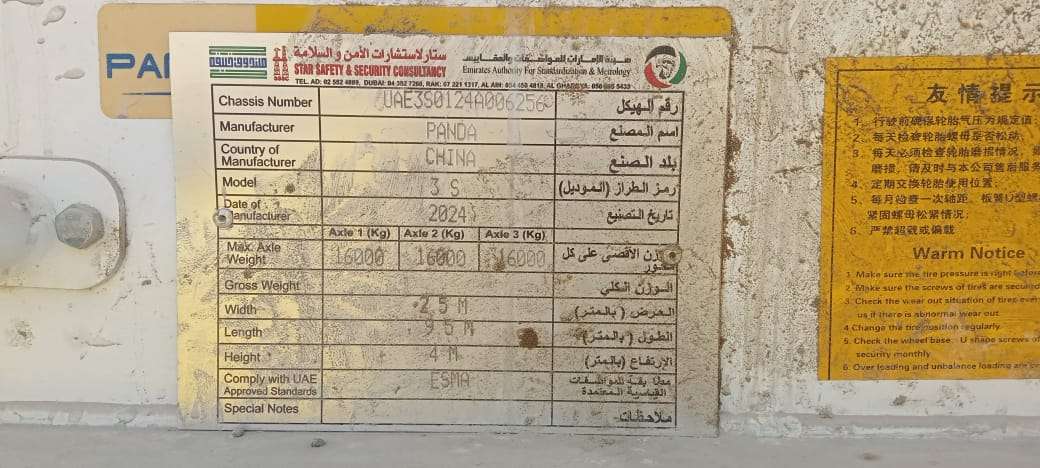 PA
صندوق فرقة
ستار لاستشارات الأمن و السلامة
STAR SAFETY & SECURITY CONSULTANCY
هيئة الإمارات للمواصفات والمقاييس
Emirates Authority For Standardization & Metrology
TEL. AD: 02 552 4889, DUBAI: 04
Chassis Number UAE3S0124A006256 رقم الهيكل
Manufacturer PANDA اسم المصنع
Country of Manufacturer CHINA بلد الصنع
Model 3 S رمز الطراز (الموديل)
Date of Manufacturer 2024 تاريخ التصنيع
Axle 1 (Kg) Axle 2 (Kg) Axle 3 (Kg)
Max. Axle Weight 16000 16000 16000 الوزن الأقصى على كل محور
Gross Weight الوزن الكلي
Width 2.5 M العرض (بالمتر)
Length 9.5 M الطول (بالمتر)
Height 4 M الإرتفاع (بالمتر)
Comply with UAE Approved Standards ESMA مطابقة للمواصفات القياسية المعتمدة
Special Notes ملاحظات
友情提示
1、行驶前确保轮胎气压为规定值;
2、每天检查轮胎螺母是否松动
3、每天必须检查轮胎磨损情况,
磨损,请及时与本公司售后服务
4、定期交换轮胎使用位置;
5、每月检查一次轴距、板簧U型螺
紧固螺母松紧情况;
6、严禁超载或偏载
Warm Notice
1. Make sure the tire pressure is right before
2. Make sure the screws of tires are secured
3. Check the wear out situation of tires ever
us if there is abnormal wear out
4. Change the tire position regularly
5. Check the wheel base、U shape screws of
security monthly
6. Over loading and unbalance loading are